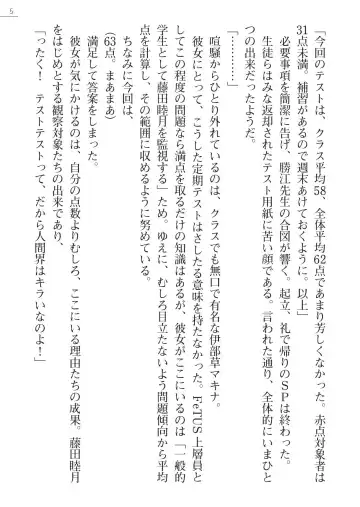 5
「今回のテストは、クラス平均58、全体平均62点であまり芳しくなかった。赤点対象者は
31点未満。補習があるので週末あけておくように。以上」
必要事項を簡潔に告げ、勝江先生の合図が響く。起立、礼で帰りのSPは終わった。
生徒らはみな返却されたテスト用紙に苦い顔である。言われた通り、全体的にいまひと
つの出来だったようだ。
「…………」
喧騒からひとり外れているのは、クラスでも無口で有名な伊部草マキナ。
彼女にとって、こうした定期テストはさしたる意味を持たなかった。FeTUS上層員と
してこの程度の問題なら満点を取るだけの知識はあるが、彼女がここにいるのは「一般的
学生として藤田睦月を監視する」ため。ゆえに、むしろ目立たないよう問題傾向から平均
点を計算し、その範囲に収めるように努めている。
ちなみに今回は、
(63点。まあまあ)
満足して答案をしまった。
彼女が気にかけるのは、自分の点数よりもむしろ、ここにいる理由たちの成果。藤田睦月
をはじめとする観察対象たちの出来であり、
「ったく！　テストテストって、だから人間界はキラいなのよ！」